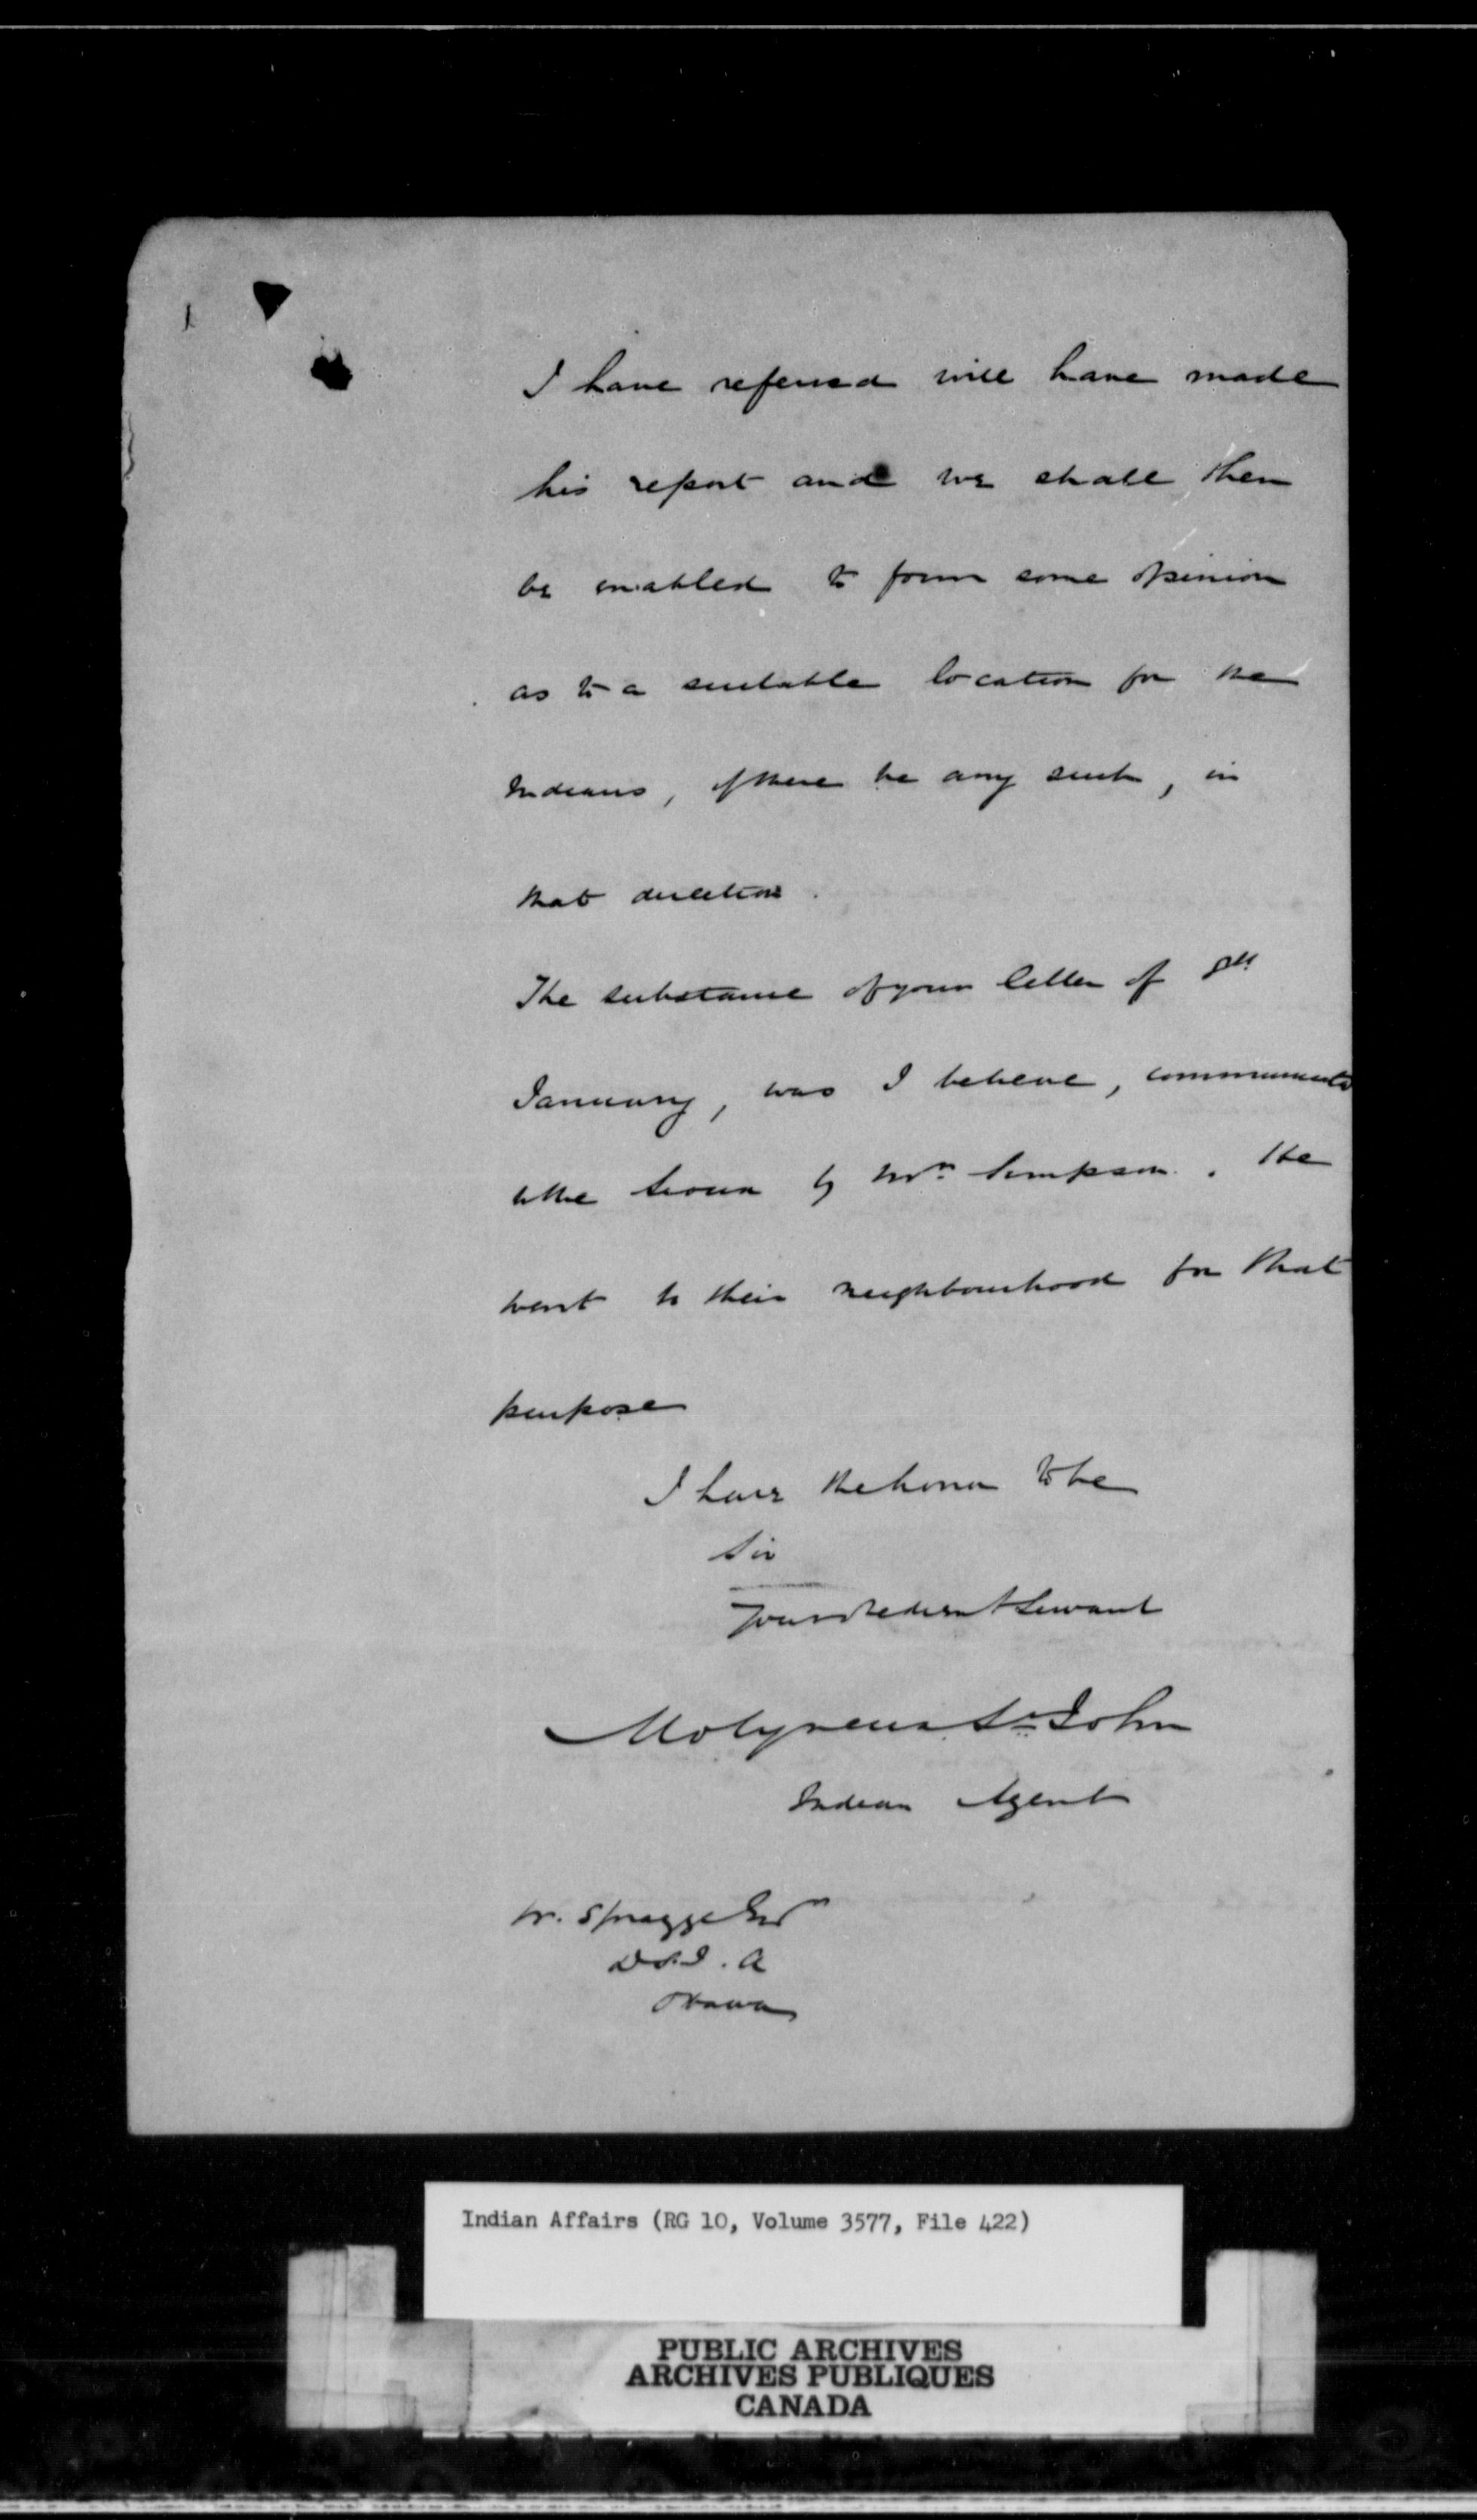 I have referred will have made
his report and we shall then
be enabled to form some opinion
as to a suitable location for the
Indians, if there be any such, in
that direction.
The substance of your letter of 8th
January, was I believe, communicated
to the Sioux by Mr. Simpson. He
went to their neighbourhood for that
purpose
I have the honor to be
Sir
Your obedient Servant
Molyneux St. John
Indian Agent
W. Spragge Esqr
D.S.I.A
Ottawa
Indian Affairs (RG 10, Volume 3577, File 422)
PUBLIC ARCHIVES
ARCHIVES PUBLIQUES
CANADA